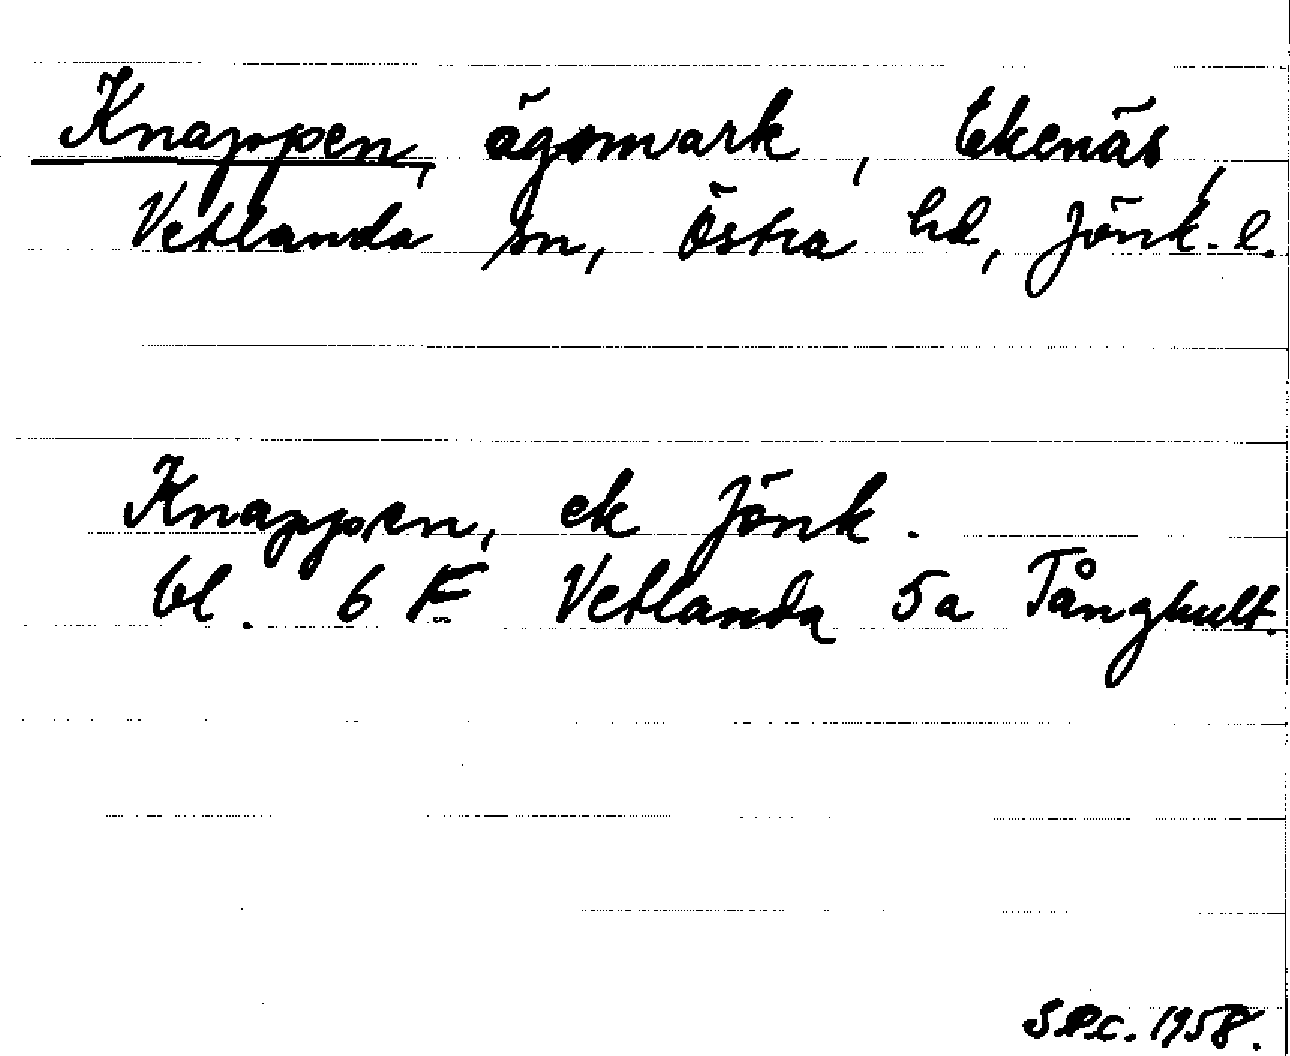 Knappen, ägomark, Ekenäs,
Vetlanda sn, Östra hd, Jönk. l.
Knappen, ek Jönk.
bl. 6 F Vetlanda 5a Tånghult.
1958.